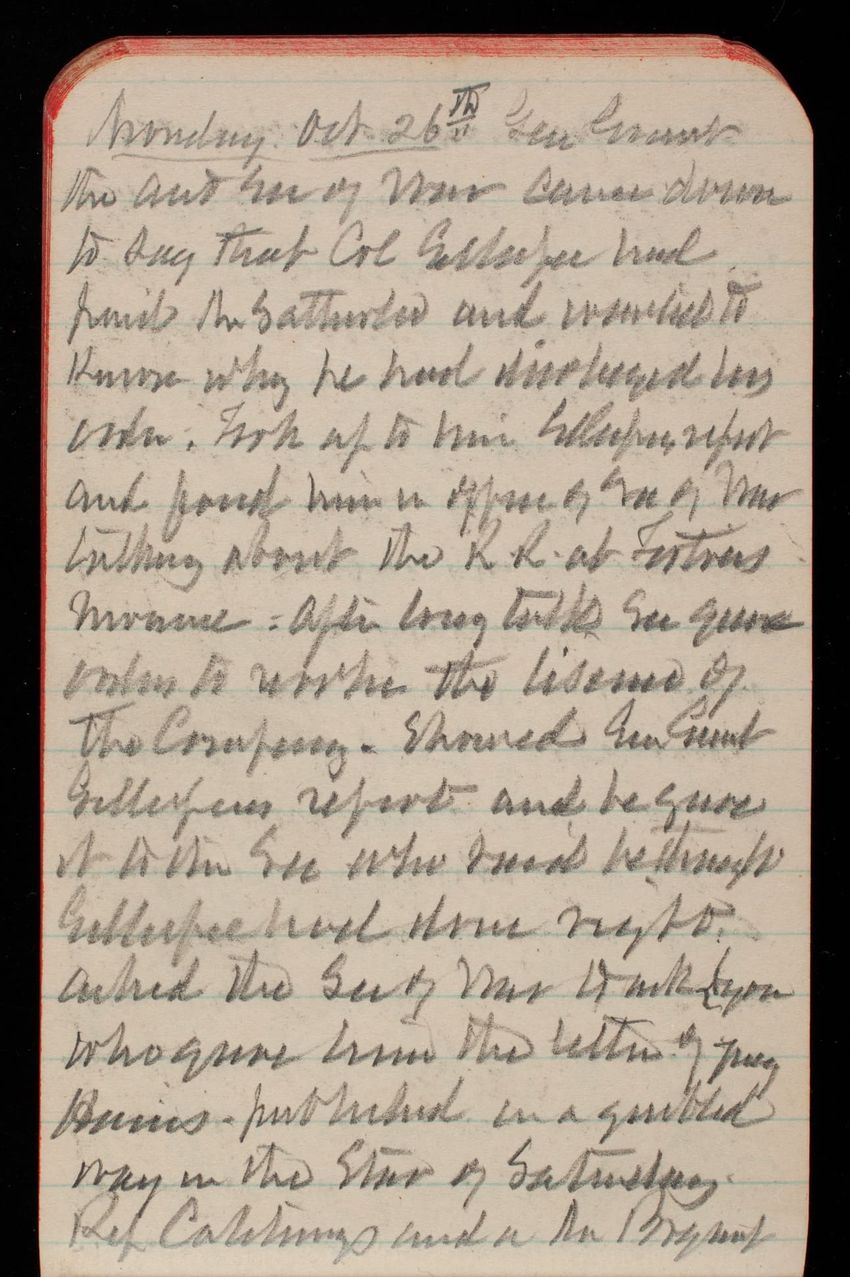 Monday Oct 26th Gen Grant
the Asst Sec of War came down
to say that Col Gillespie had
paid the and wanted to
know why he had disobeyed his
order. Took up to him Gillespies report
and found him in office of Sec of War
talking about the R R at Fortress
Monroe - After long talk Sec gave
orders to revoke the lisence of
the Company. Showed Gen Grant
Gillespies report and he gave
it to the Sec who said he thought
Gillespie had done right.
Asked the Sec of War to ask
who gave him the letter of
Hains - published in a garbled
way in the Star of Saturday.
Rep Catchings and a Mr Bryant